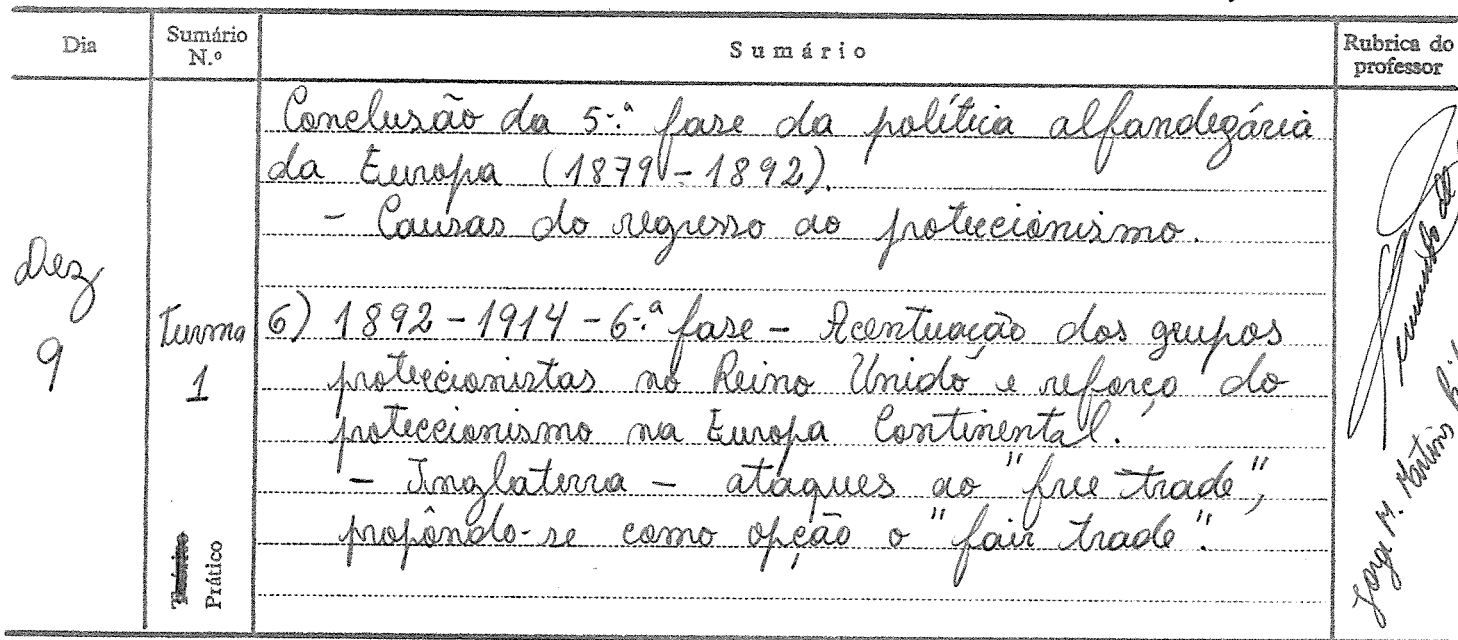 Dia
Sumário
N.º
Sumário
Rubrica do
professor
Dez
9
Turma
1
Prático
Conclusão da 5.ª fase da política alfandegária
da Europa (1879-1892).
- Causas do regresso ao proteccionismo.
6) 1892-1914-6.ª fase - Acentuação dos grupos
proteccionistas no Reino Unido e reforço do
proteccionismo na Europa Continental.
- Inglaterra - ataques ao "free trade",
propôndo-se como opção o "fair trade".
Jorge M. Martins